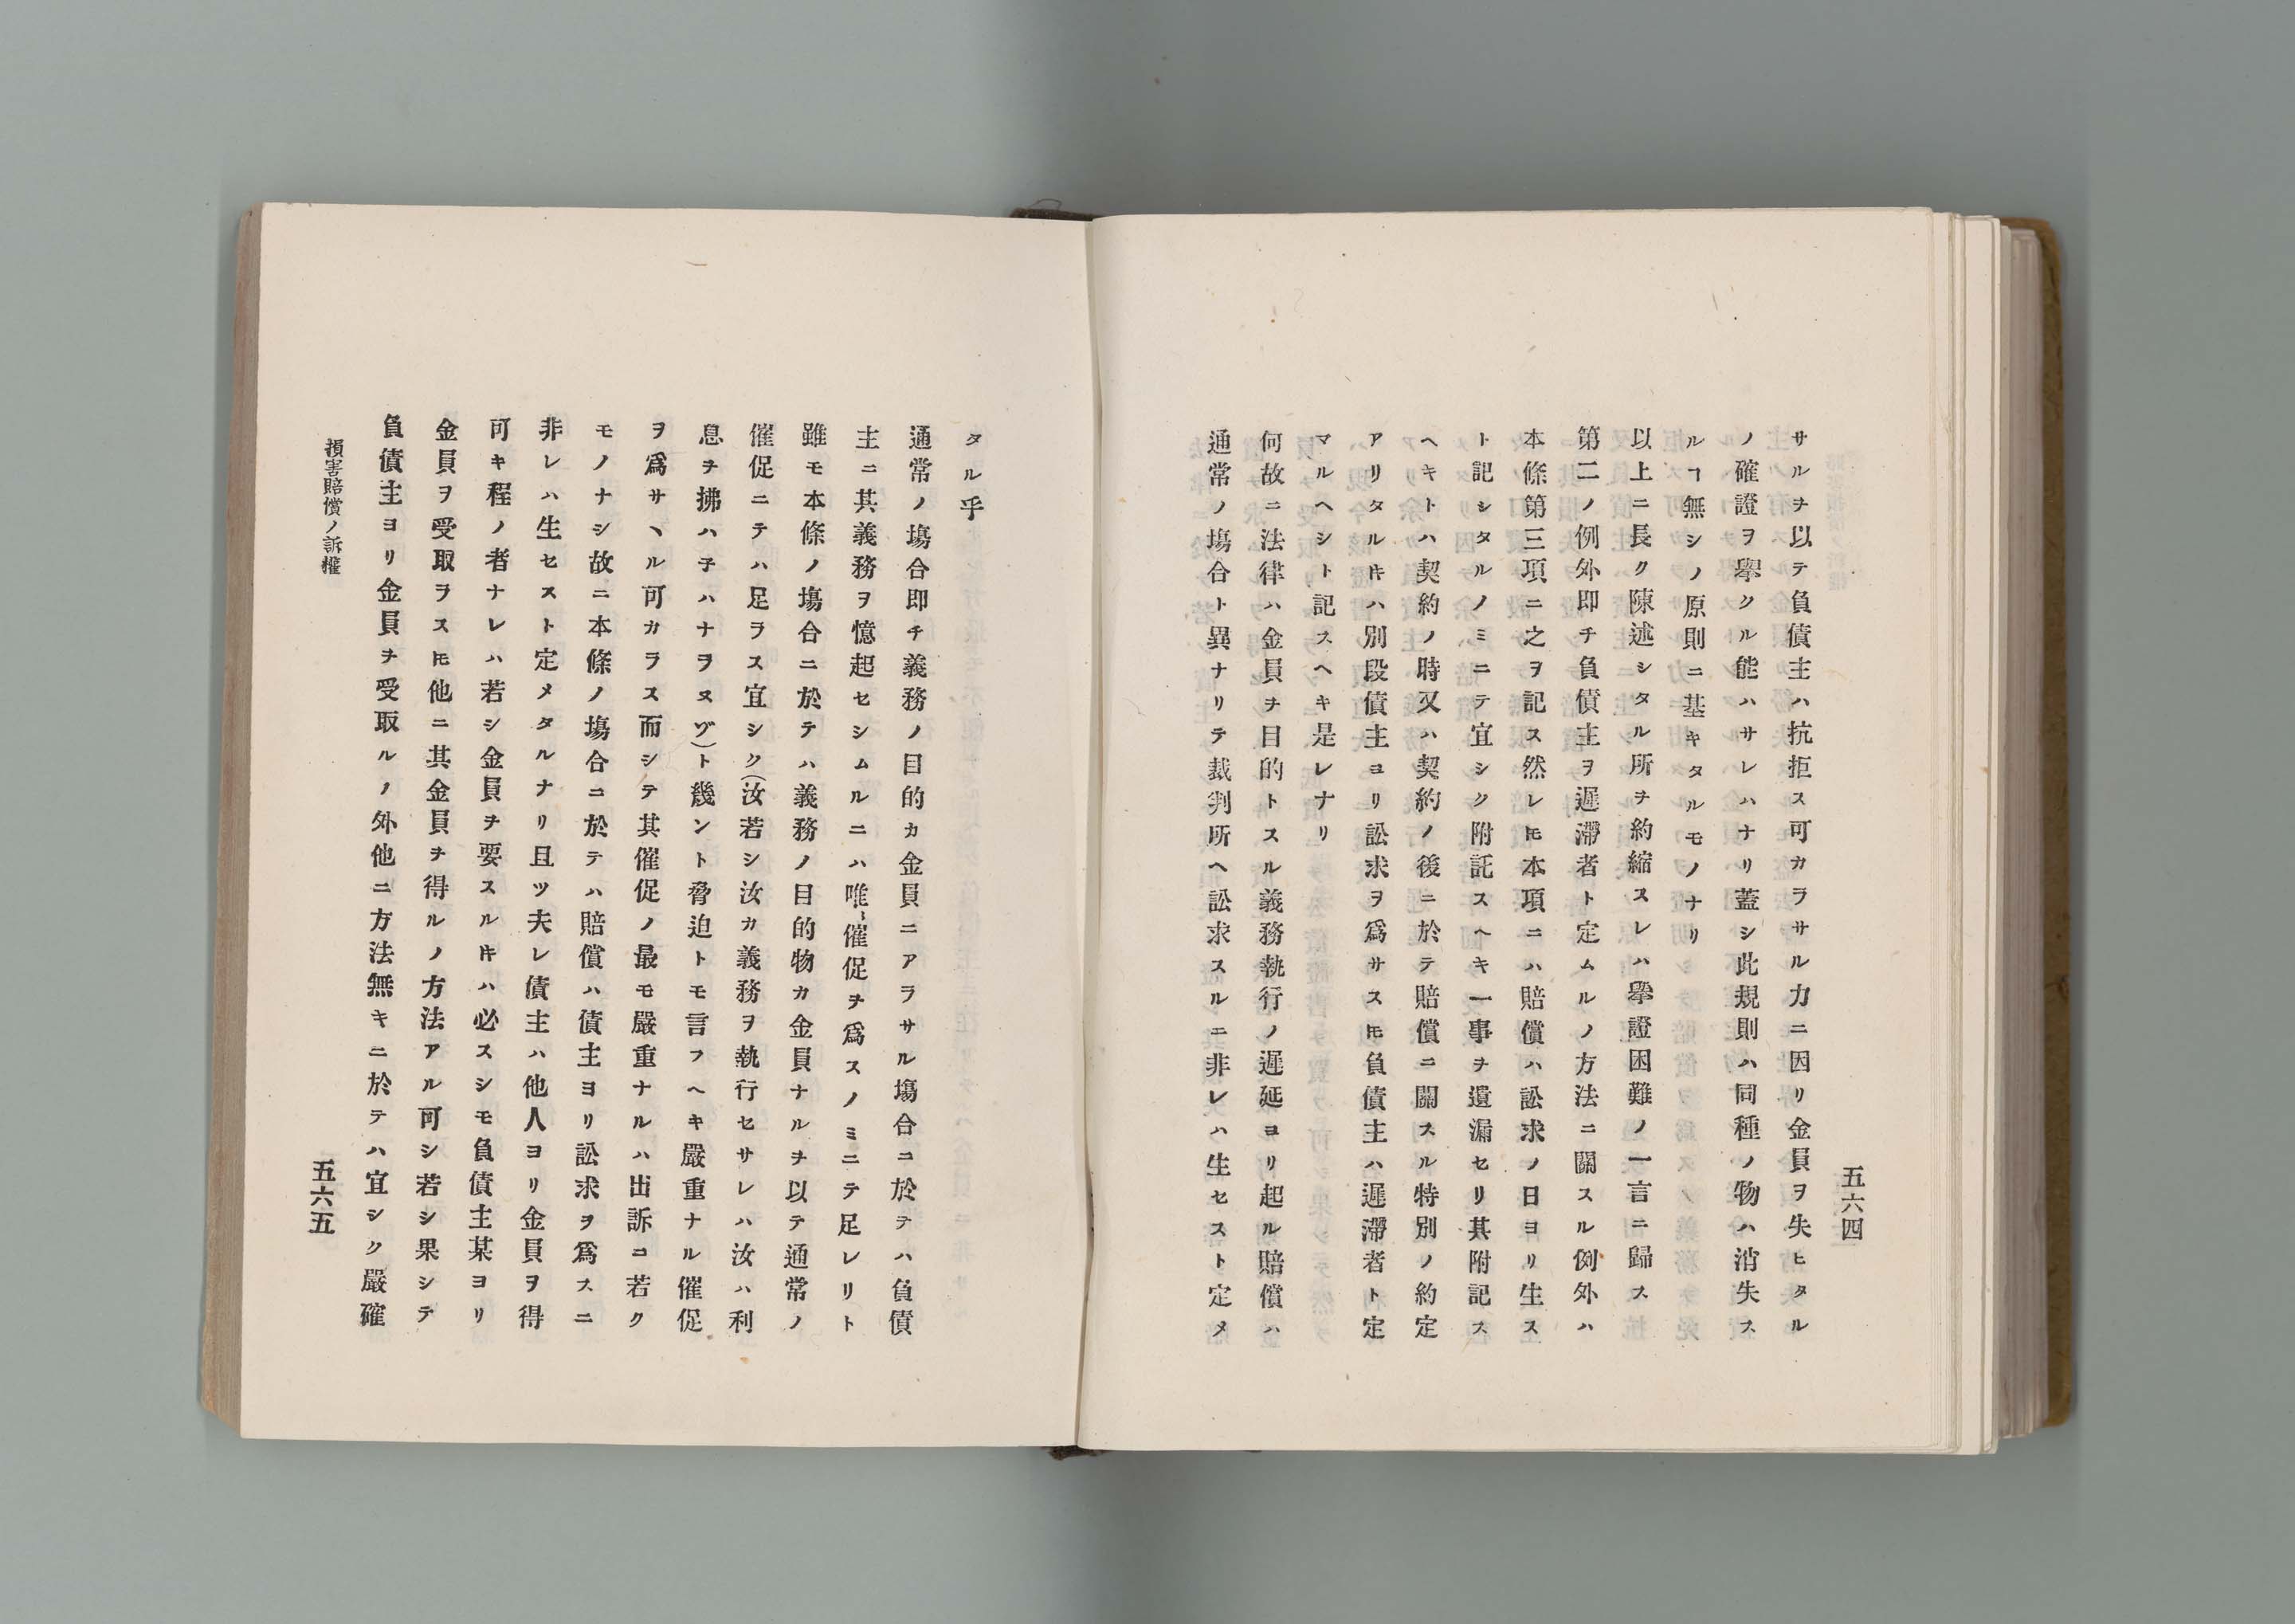 五六四
サルヲ以テ負債主ハ抗拒ス可カラサル力ニ因リ金員ヲ失ヒタル
ノ確證ヲ擧クル能ハサレハナリ蓋シ此規則ハ同種ノ物ハ消失ス
ルヿ無シノ原則ニ基キタルモノナリ
以上ニ長ク陳述シタル所ヲ約縮スレハ擧證困難ノ一言ニ歸ス
第二ノ例外即チ負債主ヲ遲滯者ト定ムルノ方法ニ關スル例外ハ
本條第三項ニ之ヲ記ス然レ𪜈本項ニハ賠償ハ訟求ノ日ヨリ生ス
ト記シタルノミニテ宜シク附記スヘキ一事ヲ遺漏セリ其附記ス
ヘキトハ契約ノ時又ハ契約ノ後ニ於テ賠償ニ關スル特別ノ約定
アリタル𪜈ハ別段債主ヨリ訟求ヲ爲サス𪜈負債主ハ遲滯者ト定
マルヘシト記スヘキ是レナリ
何故ニ法律ハ金員ヲ目的トスル義務執行ノ遲延ヨリ起ル賠償ハ
通常ノ塲合ト異ナリテ裁判所ヘ訟求スルニ非レハ生セスト定メ
タル乎
通常ノ塲合即チ義務ノ目的カ金員ニアラサル塲合ニ於テハ負債
主ニ其義務ヲ憶起セシムルニハ唯、催促ヲ爲スノミニテ足レリト
雖モ本條ノ塲合ニ於テハ義務ノ目的物カ金員ナルヲ以テ通常ノ
催促ニテハ足ラス宜シク(汝若シ汝カ義務ヲ執行セサレハ汝ハ利
息ヲ拂ハ子ハナラヌゾ)ト幾ント脅迫トモ言フヘキ嚴重ナル催促
ヲ爲サヽル可カラス而シテ其催促ノ最モ嚴重ナルハ出訴ニ若ク
モノナシ故ニ本條ノ塲合ニ於テハ賠償ハ債主ヨリ訟求ヲ爲スニ
非レハ生セスト定メタルナリ且ツ夫レ債主ハ他人ヨリ金員ヲ得
可キ程ノ者ナレハ若シ金員ヲ要スル𪜈ハ必スシモ負債主某ヨリ
金員ヲ受取ラス𪜈他ニ其金員ヲ得ルノ方法アル可シ若シ果シテ
負債主ヨリ金員ヲ受取ルノ外他ニ方法無キニ於テハ宜シク嚴確
損害賠償ノ訴權
五六五